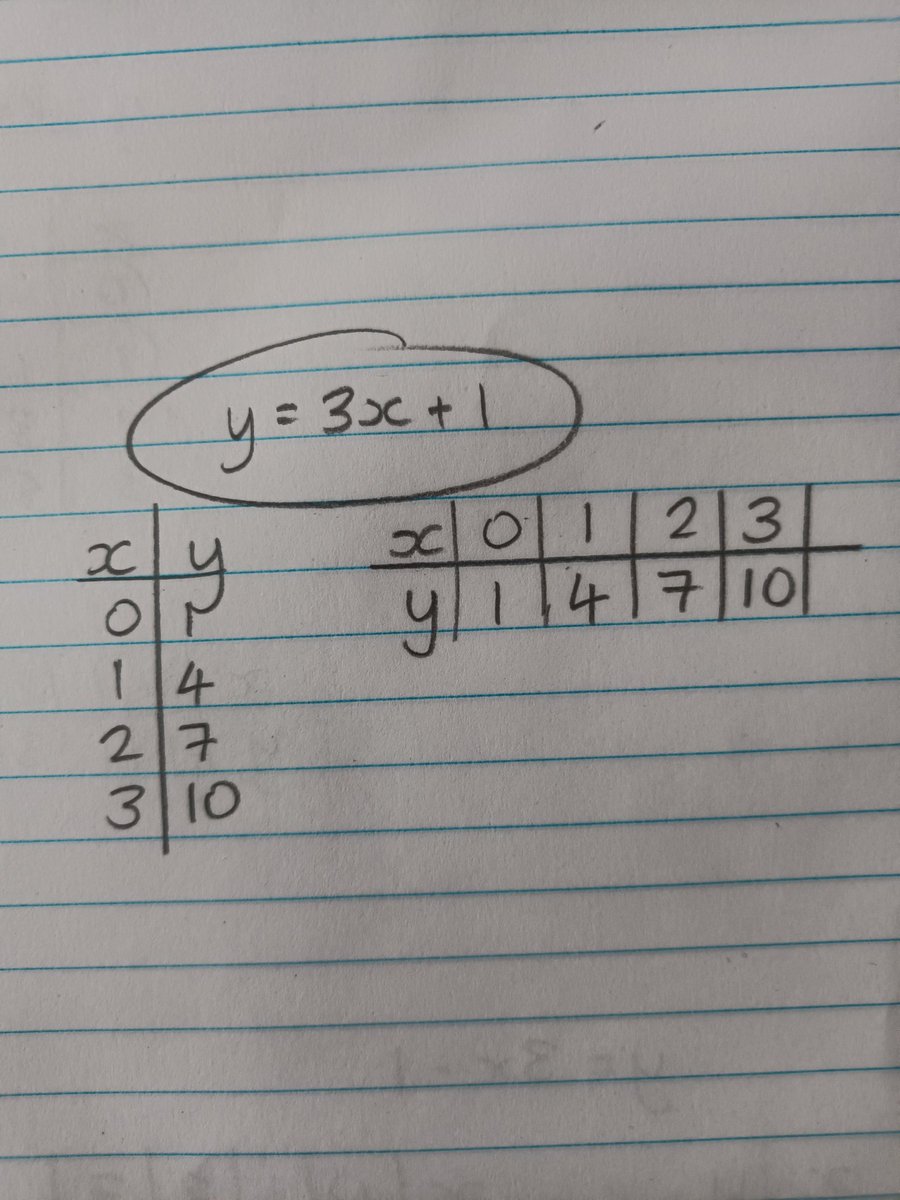 y = 3x + 1
x | y
0 | 1
1 | 4
2 | 7
3 | 10
x | 0 | 1 | 2 | 3 |
y | 1 | 4 | 7 | 10 |